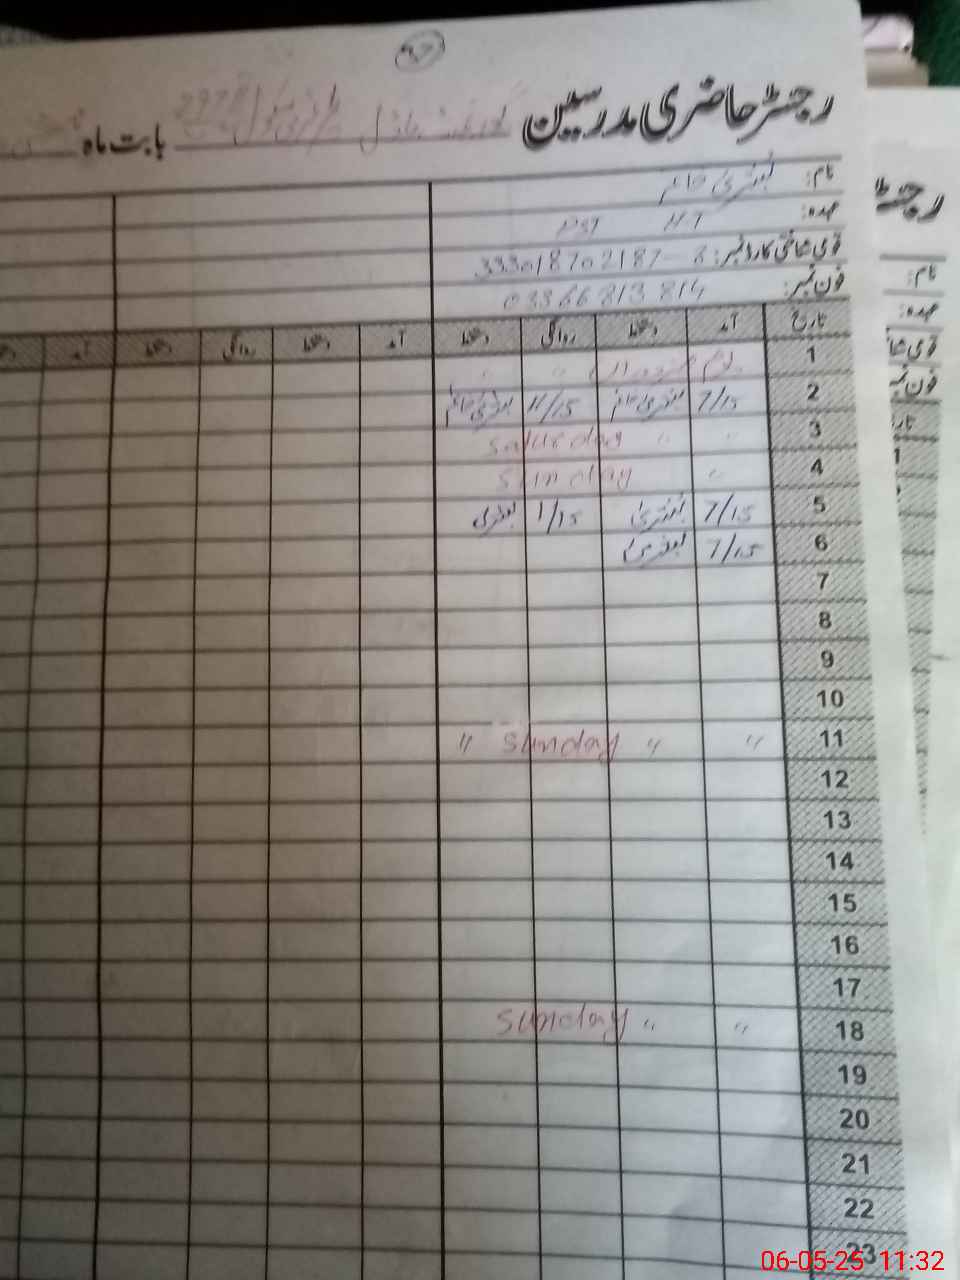 رجسٹر حاضری مدرسین گورنمنٹ ماڈل پرائمری سکول بابت ماہ
نام: بشریٰ خانم
عہدہ: PST HT
قومی شناختی کارڈ نمبر:
فون نمبر: 03366813814
تاریخ آمد دستخط روانگی دستخط آمد دستخط روانگی دستخط آمد
1 یوم مزدوراں " "
2 7/15 بشریٰ خانم 11/15 بشریٰ خانم
3 " " Saturday
4 " Sunday
5 7/15 بشریٰ 1/15 بشریٰ
6 7/15 بشریٰ
7
8
9
10
11 " " Sunday "
12
13
14
15
16
17
18 " " Sunday
19
20
21
22
23
رجسٹر
نام:
عہدہ:
قومی شنا
فون نمبر
تاریخ
1
06-05-25 11:32